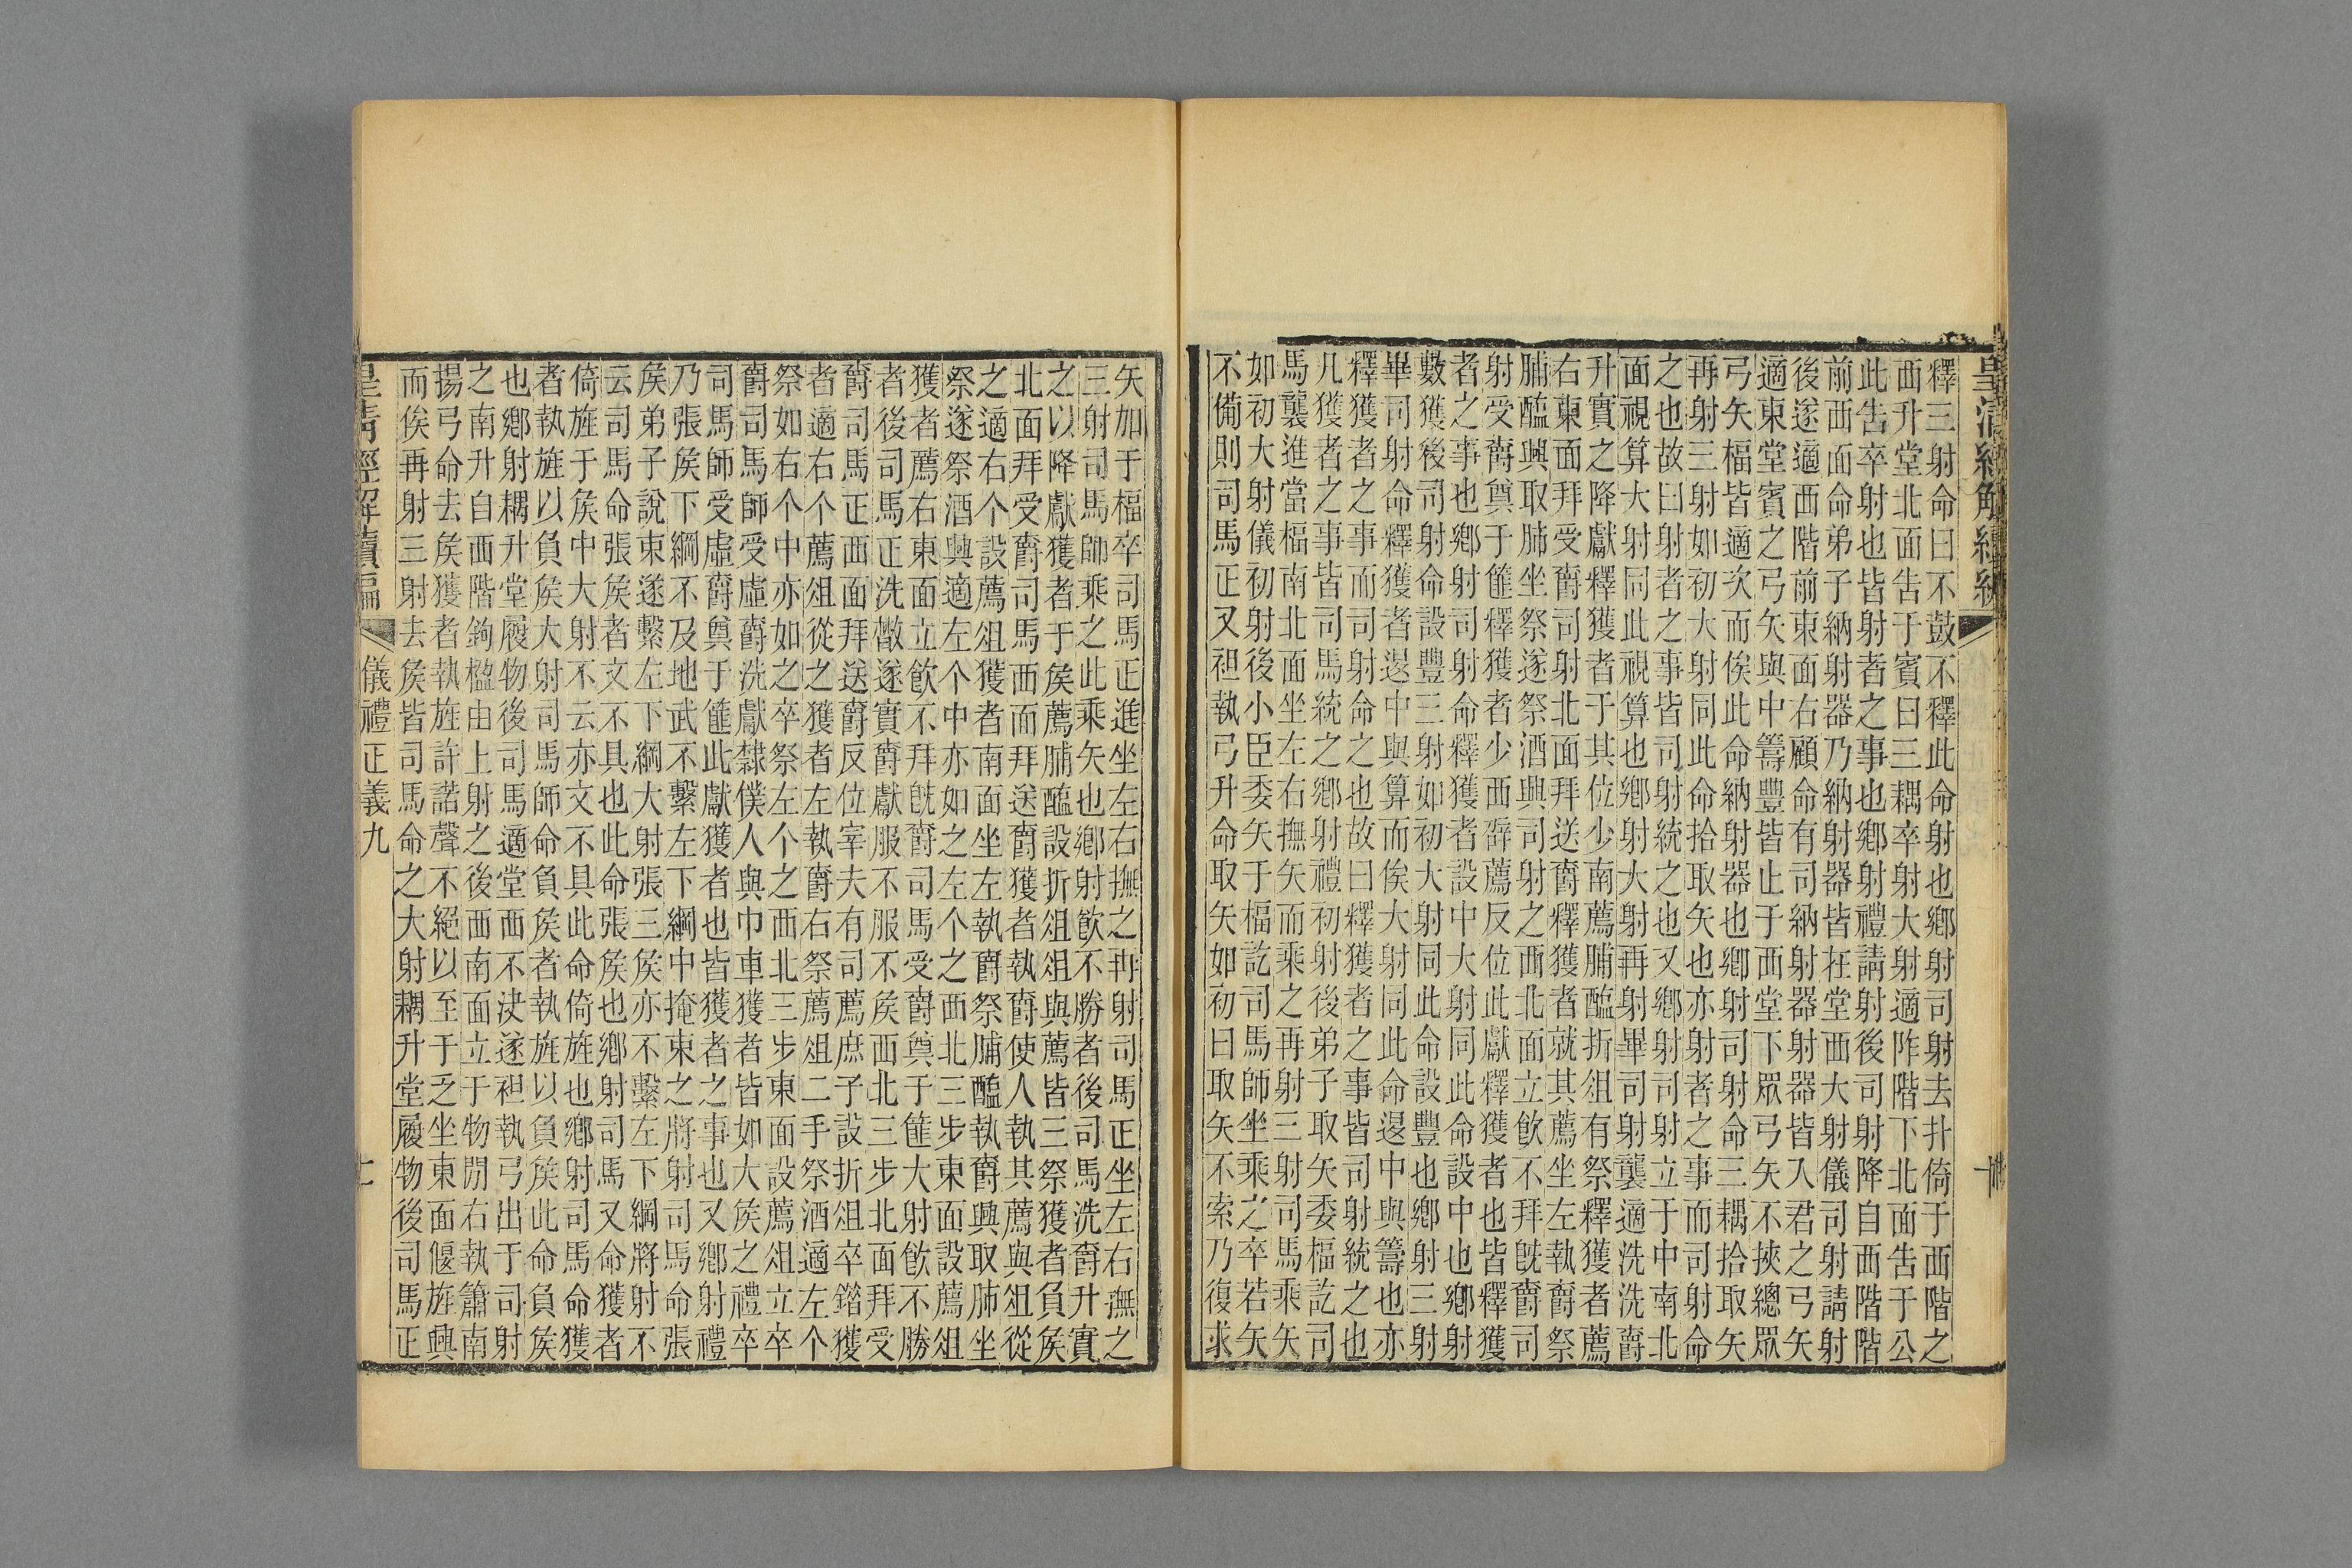 皇清經解續編
釋三射命曰不鼓不釋此命射也鄉射司射去扑倚于西階之
西升堂北面告于賓曰三耦卒射大射適阼階下北面告于公
此告卒射也皆射者之事也鄉射禮請射後司射降自西階階
前西面命弟子納射器乃納射器皆在堂西大射儀司射請射
後遂適西階前東面右顧命有司納射器射器皆入君之弓矢
適東堂賓之弓矢與中籌豐皆止于西堂下眾弓矢不挾總眾
弓矢楅皆適次而俟此命納射器也鄉射司射命三耦拾取矢
再射三射如初大射同此命拾取矢也亦射者之事而司射命
之也故曰射者之事皆司射統之也又鄉射司射立于中南北
面視算大射同此視算也鄉射大射再射畢司射襲適洗洗爵
升實之降獻釋獲者于其位少南薦脯醢折俎有祭釋獲者薦
右東面拜受爵司射北面拜送爵釋獲者就其薦坐左執爵祭
脯醢興取肺坐祭遂祭酒興司射之西北面立飲不拜既爵司
射受爵奠于篚釋獲者少西辟薦反位此獻釋獲者也皆釋獲
者之事也鄉射司射命釋獲者設中大射同此命設中也鄉射
數獲後司射命設豐三射如初大射同此命設豐也鄉射三射
畢司射命釋獲者退中與算而俟大射同此命退中與籌也亦
釋獲者之事而司射命之也故曰釋獲者之事皆司射統之也
凡獲者之事皆司馬統之鄉射禮初射後弟子取矢委楅訖司
馬襲進當楅南北面坐左右撫矢而乘之再射三射司馬乘矢
如初大射儀初射後小臣委矢于楅訖司馬師坐乘之卒若矢
不備則司馬正又袒執弓升命取矢如初曰取矢不索乃復求
矢加于楅卒司馬正進坐左右撫之再射司馬正坐左右撫之
三射司馬師乘之此乘矢也鄉射飲不勝者後司馬洗爵升實
之以降獻獲者于侯薦脯醢設折俎俎與薦皆三祭獲者負侯
北面拜受爵司馬西面拜送爵獲者執爵使人執其薦與俎從
之適右个設薦俎獲者南面坐左執爵祭脯醢執爵興取肺坐
祭遂祭酒興適左个中亦如之左个之西北三步東面設薦俎
獲者薦右東面立飲不拜既爵司馬受爵奠于篚大射飲不勝
者後司馬正洗散遂實爵獻服不服不侯西北三步北面拜受
爵司馬正西面拜送爵反位宰夫有司薦庶子設折俎卒錯獲
者適右个薦俎從之獲者左執爵右祭薦俎二手祭酒適左个
祭如右个中亦如之卒祭左个之西北三步東面設薦俎立卒
爵司馬師受虛爵洗獻隸僕人與巾車獲者皆如大侯之禮卒
司馬師受虛爵奠于篚此獻獲者也皆獲者之事也又鄉射禮
乃張侯下綱不及地武不繫左下綱中掩束之將射司馬命張
侯弟子說束遂繫左下綱大射張三侯亦不繫左下綱將射不
云司馬命張侯者文不具也此命張侯也鄉射司馬又命獲者
倚旌于侯中大射不云亦文不具此命倚旌也鄉射司馬命獲
者執旌以負侯大射司馬師命負侯者執旌以負侯此命負侯
也鄉射耦升堂履物後司馬適堂西不決遂袒執弓出于司射
之南升自西階鉤楹由上射之後西南面立于物閒右執簫南
揚弓命去侯獲者執旌許諾聲不絕以至于乏坐東面偃旌興
而俟再射三射去侯皆司馬命之大射耦升堂履物後司馬正
儀禮正義九